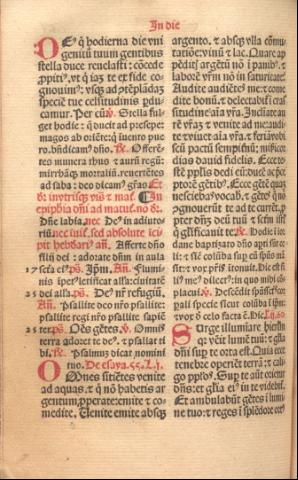 In die
Deꝰ q̄ hodierna die vni
genitū tuum gentibus
stella duce reuelasti: cōcede
ꝓpitiꝰ, vt q̄ iaꝫ te ex fide co
gnouimꝰ: vsqꝫ ad ꝯtēplādaꝫ
speciē tue celsitudinis ꝑdu
camur. Per eū. Stella ful
get hodie: q̄ ducit ad presepe:
magos ab oriēte
ro. bn̄dicamꝰ dn̄o. Offerē
tes munera thus et aurū regū:
mirrhāqꝫ mortalū. reuertētes
ad saba: deo dicamꝰ grās. Et
epiphīa dn̄i ad
Dn̄e labia. nec Deꝰ in adiuto
riū. nec sed absolute
Afferte dn̄o
filij dei: adorate dn̄m in aula
17 sctā eiꝰ. ps. Ipm̄. Añ. Flumi
nis ipetꝰ letificat alla: ciuitatē
25 dei alla. ps. Deꝰ nr̄ refugiū.
Añ. Psallite deo nr̄o psallite:
psallite regi nr̄o psallite sapiē
25 ter. ps. Oēs gētes. Omnis
terra adoret te deꝰ, et psallat ti
bi. Psalmuꝫ dicat nomini
tuo. De esaya. 55. L. j.
Omnes sitiētes venite
ad aquas: et q̄ nō habetis ar
gentum, ꝓperate: emite et co
medite. Uenite emite absqꝫ
argento, et absqꝫ vlla cōmu
tatiōe: vinū et lac. Quare ap
pēditꝭ argētū nō ī panibꝰ: et
laborē vr̄m nō in saturitate?
Audite audiētes me: et come
dite bonū: et delectabit̉ crassi
tudine aīa vr̄a. Inclinate au
rē vr̄aꝫ et venite ad me: audi
te et viuet aīa vr̄a. et feriā vobi
scū pactū sempitnū: mīsicor
dias dauid fidelis. Ecce te
stē pplis dedi eū: ducē ac pce
ptorē gētibꝰ. Ecce gētē quaꝫ
nesciebas vocab: et gētes q̄ nō
cognouerūt te ad te curret, ꝓ
pter dn̄ꝫ deū tuū et scm̄ isrl̄
q̄ glificauit te. Hodie ī ior
dane baptizato dn̄o apti sūt ce
li: et sic colūba sup eū spūs mā
sit: et vox pr̄is ītonuit. Hic est fi
liꝰ meꝰ dilectꝰ: in quo mihi cō
placui. Descēdit spūs sctūs cor
pali specie sicut colūba ī ipm̄:
vox de celo facta ē. Hic. L. ij. 60
Surge illuminare hierlm̄
qꝛ veīt lumē tuū: et glia
dn̄i sup te orta est. Quia ecce
tenebre operiēt terrā: et cali
go pplos. Sup te aūt orietur
dn̄s: et glīa eiꝰ in te videbit̉.
Et ambulabūt gētes ī lumi
ne tuo: et reges ī splēdore ort